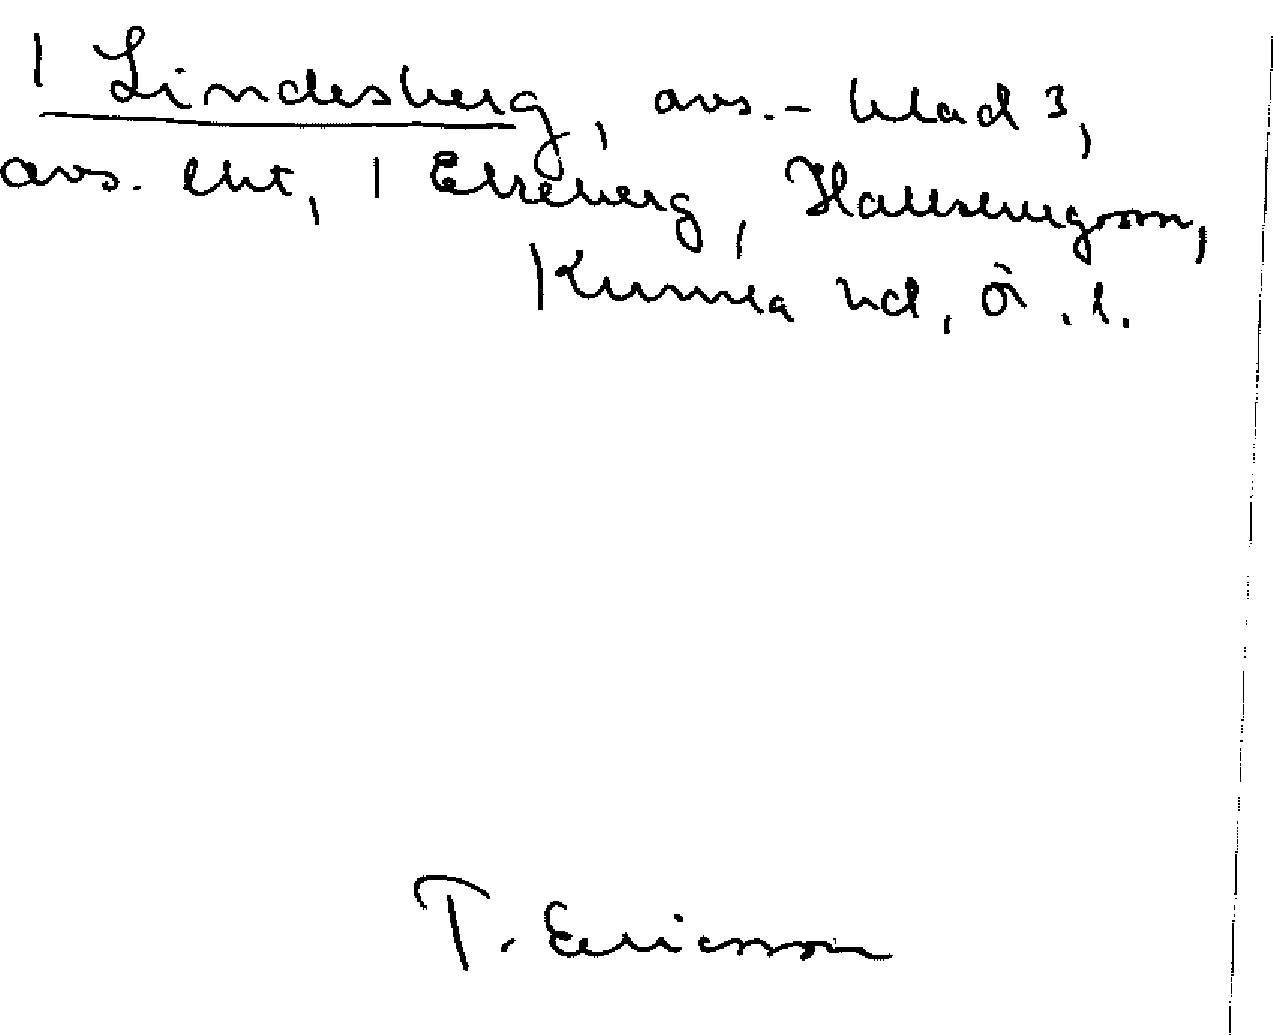 1 Lindesberg, avs. - blad 3,
avs. ekt, 1 Ekeberg, Hallsbergsom,
Kumla hd, Ö. l.
T. Ericsson